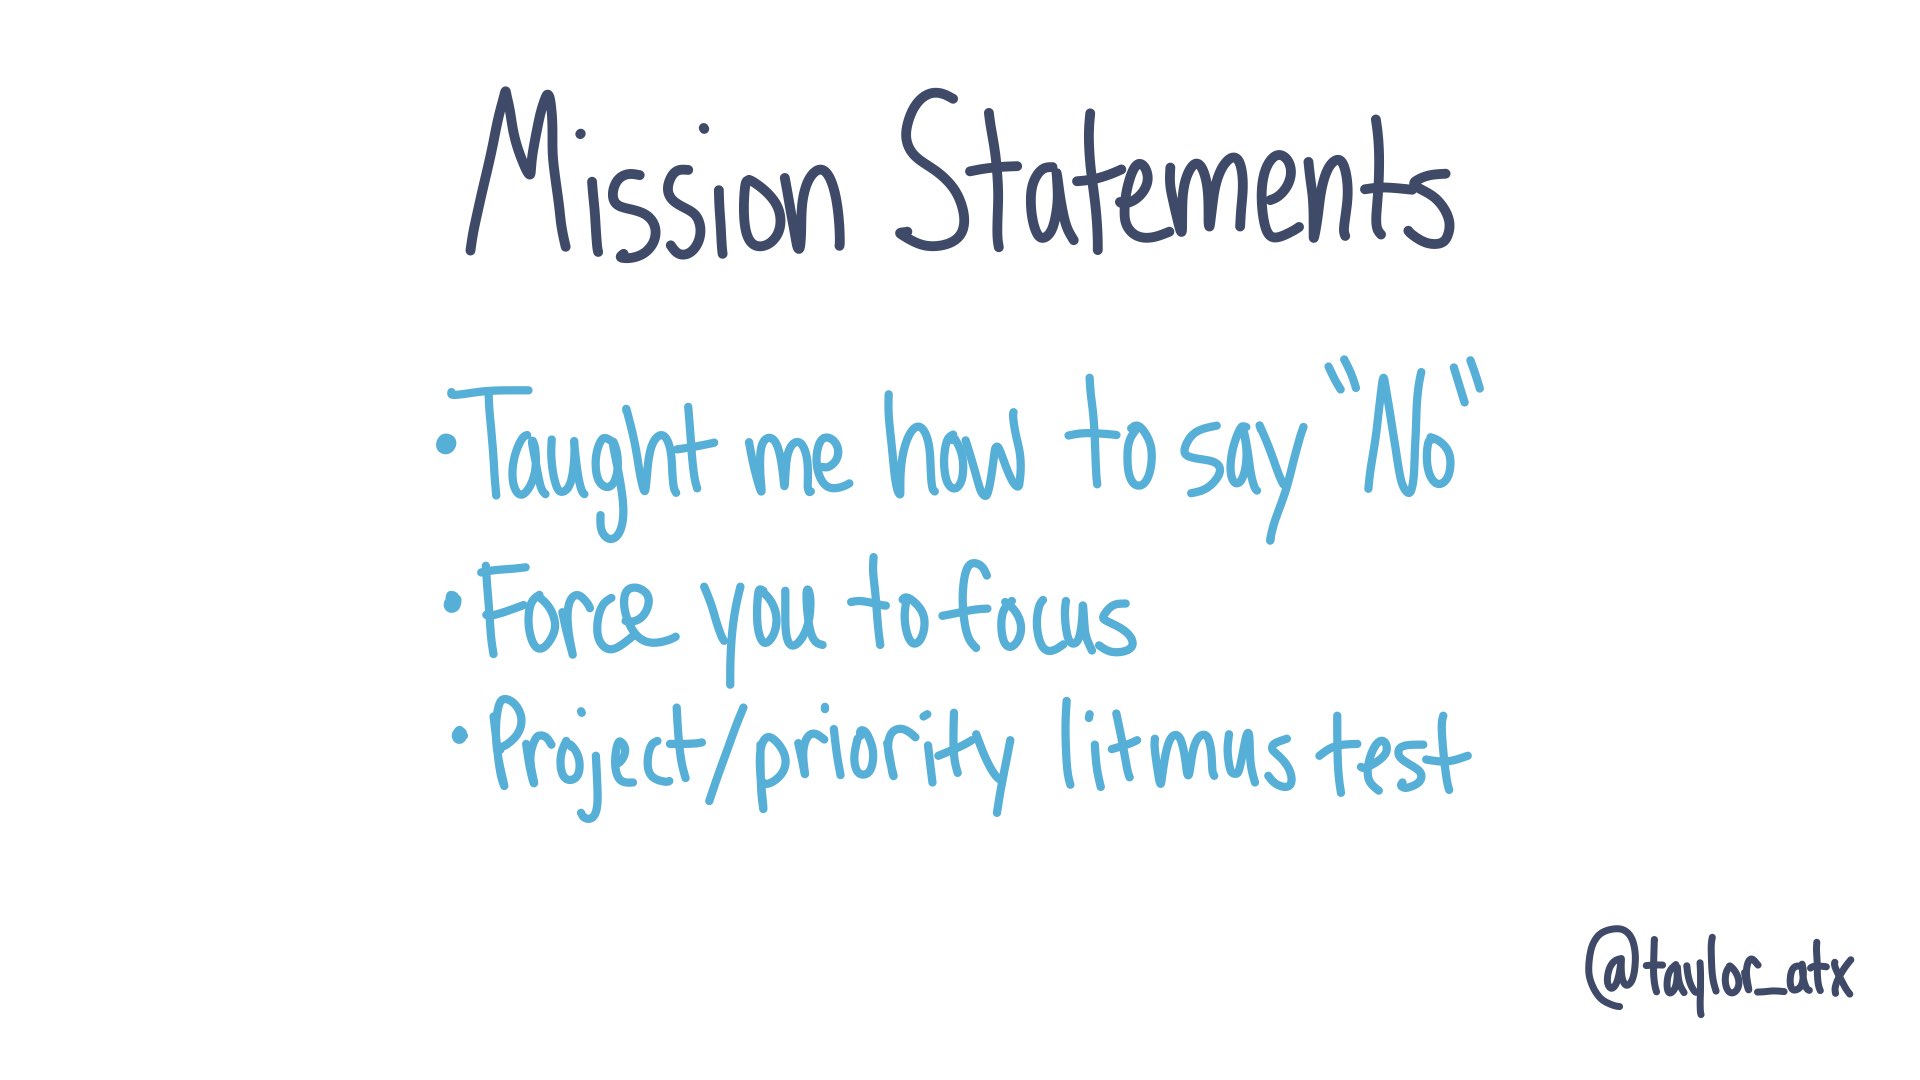 Mission Statements
• Taught me how to say "No"
• Force you to focus
• Project/priority litmus test
@taylor_atx